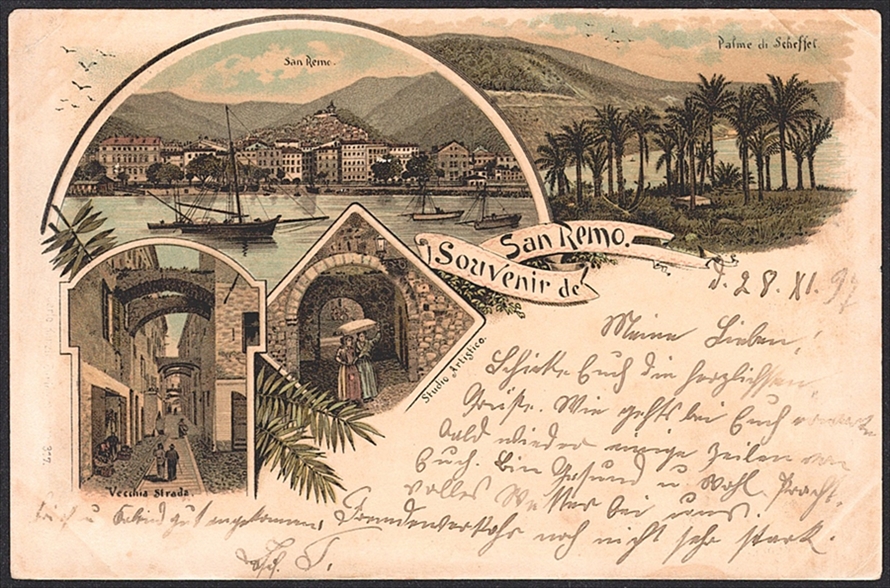 San Remo.
Palme di Scheffel
Souvenir de
San Remo.
Studio Artistico.
Vecchia Strada.
357.
d. 28. XI. 97
Meine Lieben!
Schicke Euch die herzlichsten
Grüße. Wie gehts bei Euch erwarte
bald wieder einige Zeilen von
Euch. Bin Gesund u. Wohl. Pracht-
volles Wetter bei uns.
Fremdenverkehr noch nicht sehr stark.
u gut angekommen,